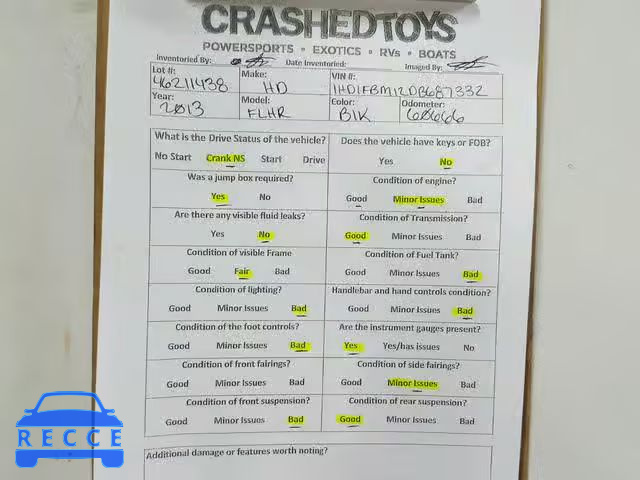 CRASHEDTOYS
POWERSPORTS • EXOTICS • RVs • BOATS
Inventoried By: Date Inventoried: Imaged By:
Lot #: 46211438 Make: HD VIN #: 1HD1FBM12DB687332
Year: 2013 Model: FLHR Color: BlK Odometer: 60666
What is the Drive Status of the vehicle? Does the vehicle have keys or FOB?
No Start Crank NS Start Drive Yes No
Was a jump box required? Condition of engine?
Yes No Good Minor Issues Bad
Are there any visible fluid leaks? Condition of Transmission?
Yes No Good Minor Issues Bad
Condition of visible Frame Condition of Fuel Tank?
Good Fair Bad Good Minor Issues Bad
Condition of lighting? Handlebar and hand controls condition?
Good Minor Issues Bad Good Minor Issues Bad
Condition of the foot controls? Are the instrument gauges present?
Good Minor Issues Bad Yes Yes/has issues No
Condition of front fairings? Condition of side fairings?
Good Minor Issues Bad Good Minor Issues Bad
Condition of front suspension? Condition of rear suspension?
Good Minor Issues Bad Good Minor Issues Bad
Additional damage or features worth noting?
RECCE